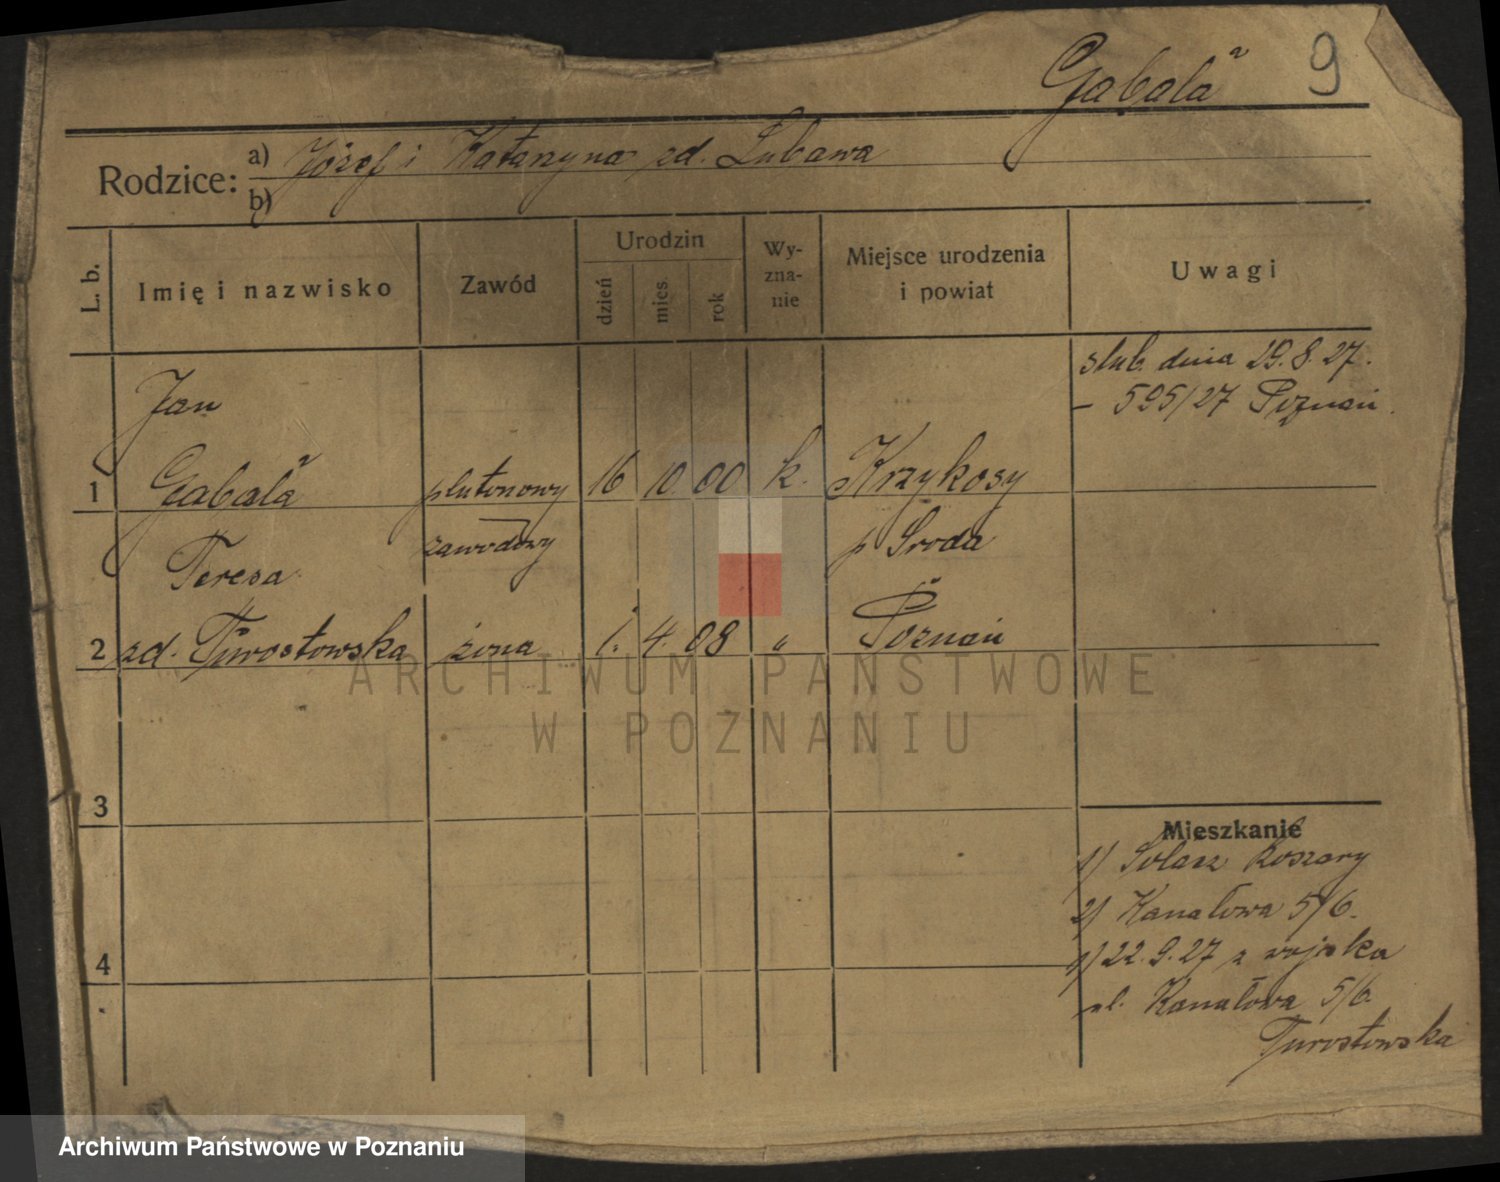 Gąbala
9
Rodzice: a) Józef i Katarzyna zd. Lubawa
b)
L. b.
Imię i nazwisko
Zawód
Urodzin
dzień
mies.
rok
Wy-
zna-
nie
Miejsce urodzenia
i powiat
Uwagi
ślub. dnia 29.8.27.
– 595/27 Poznań.
Jan
1 Gąbala plutonowy 16 10. 00 k. Krzykosy
zawodowy p Środa
Teresa
2 zd. Turostowska żona 1. 4. 08 " Poznań
3
4
Mieszkanie
1) Sołacz Koszary
2) Kanałowa 5/6.
1) 22.9.27 z wojska
ul. Kanałowa 5/6.
Turostowska
ARCHIWUM PAŃSTWOWE
W POZNANIU
Archiwum Państwowe w Poznaniu